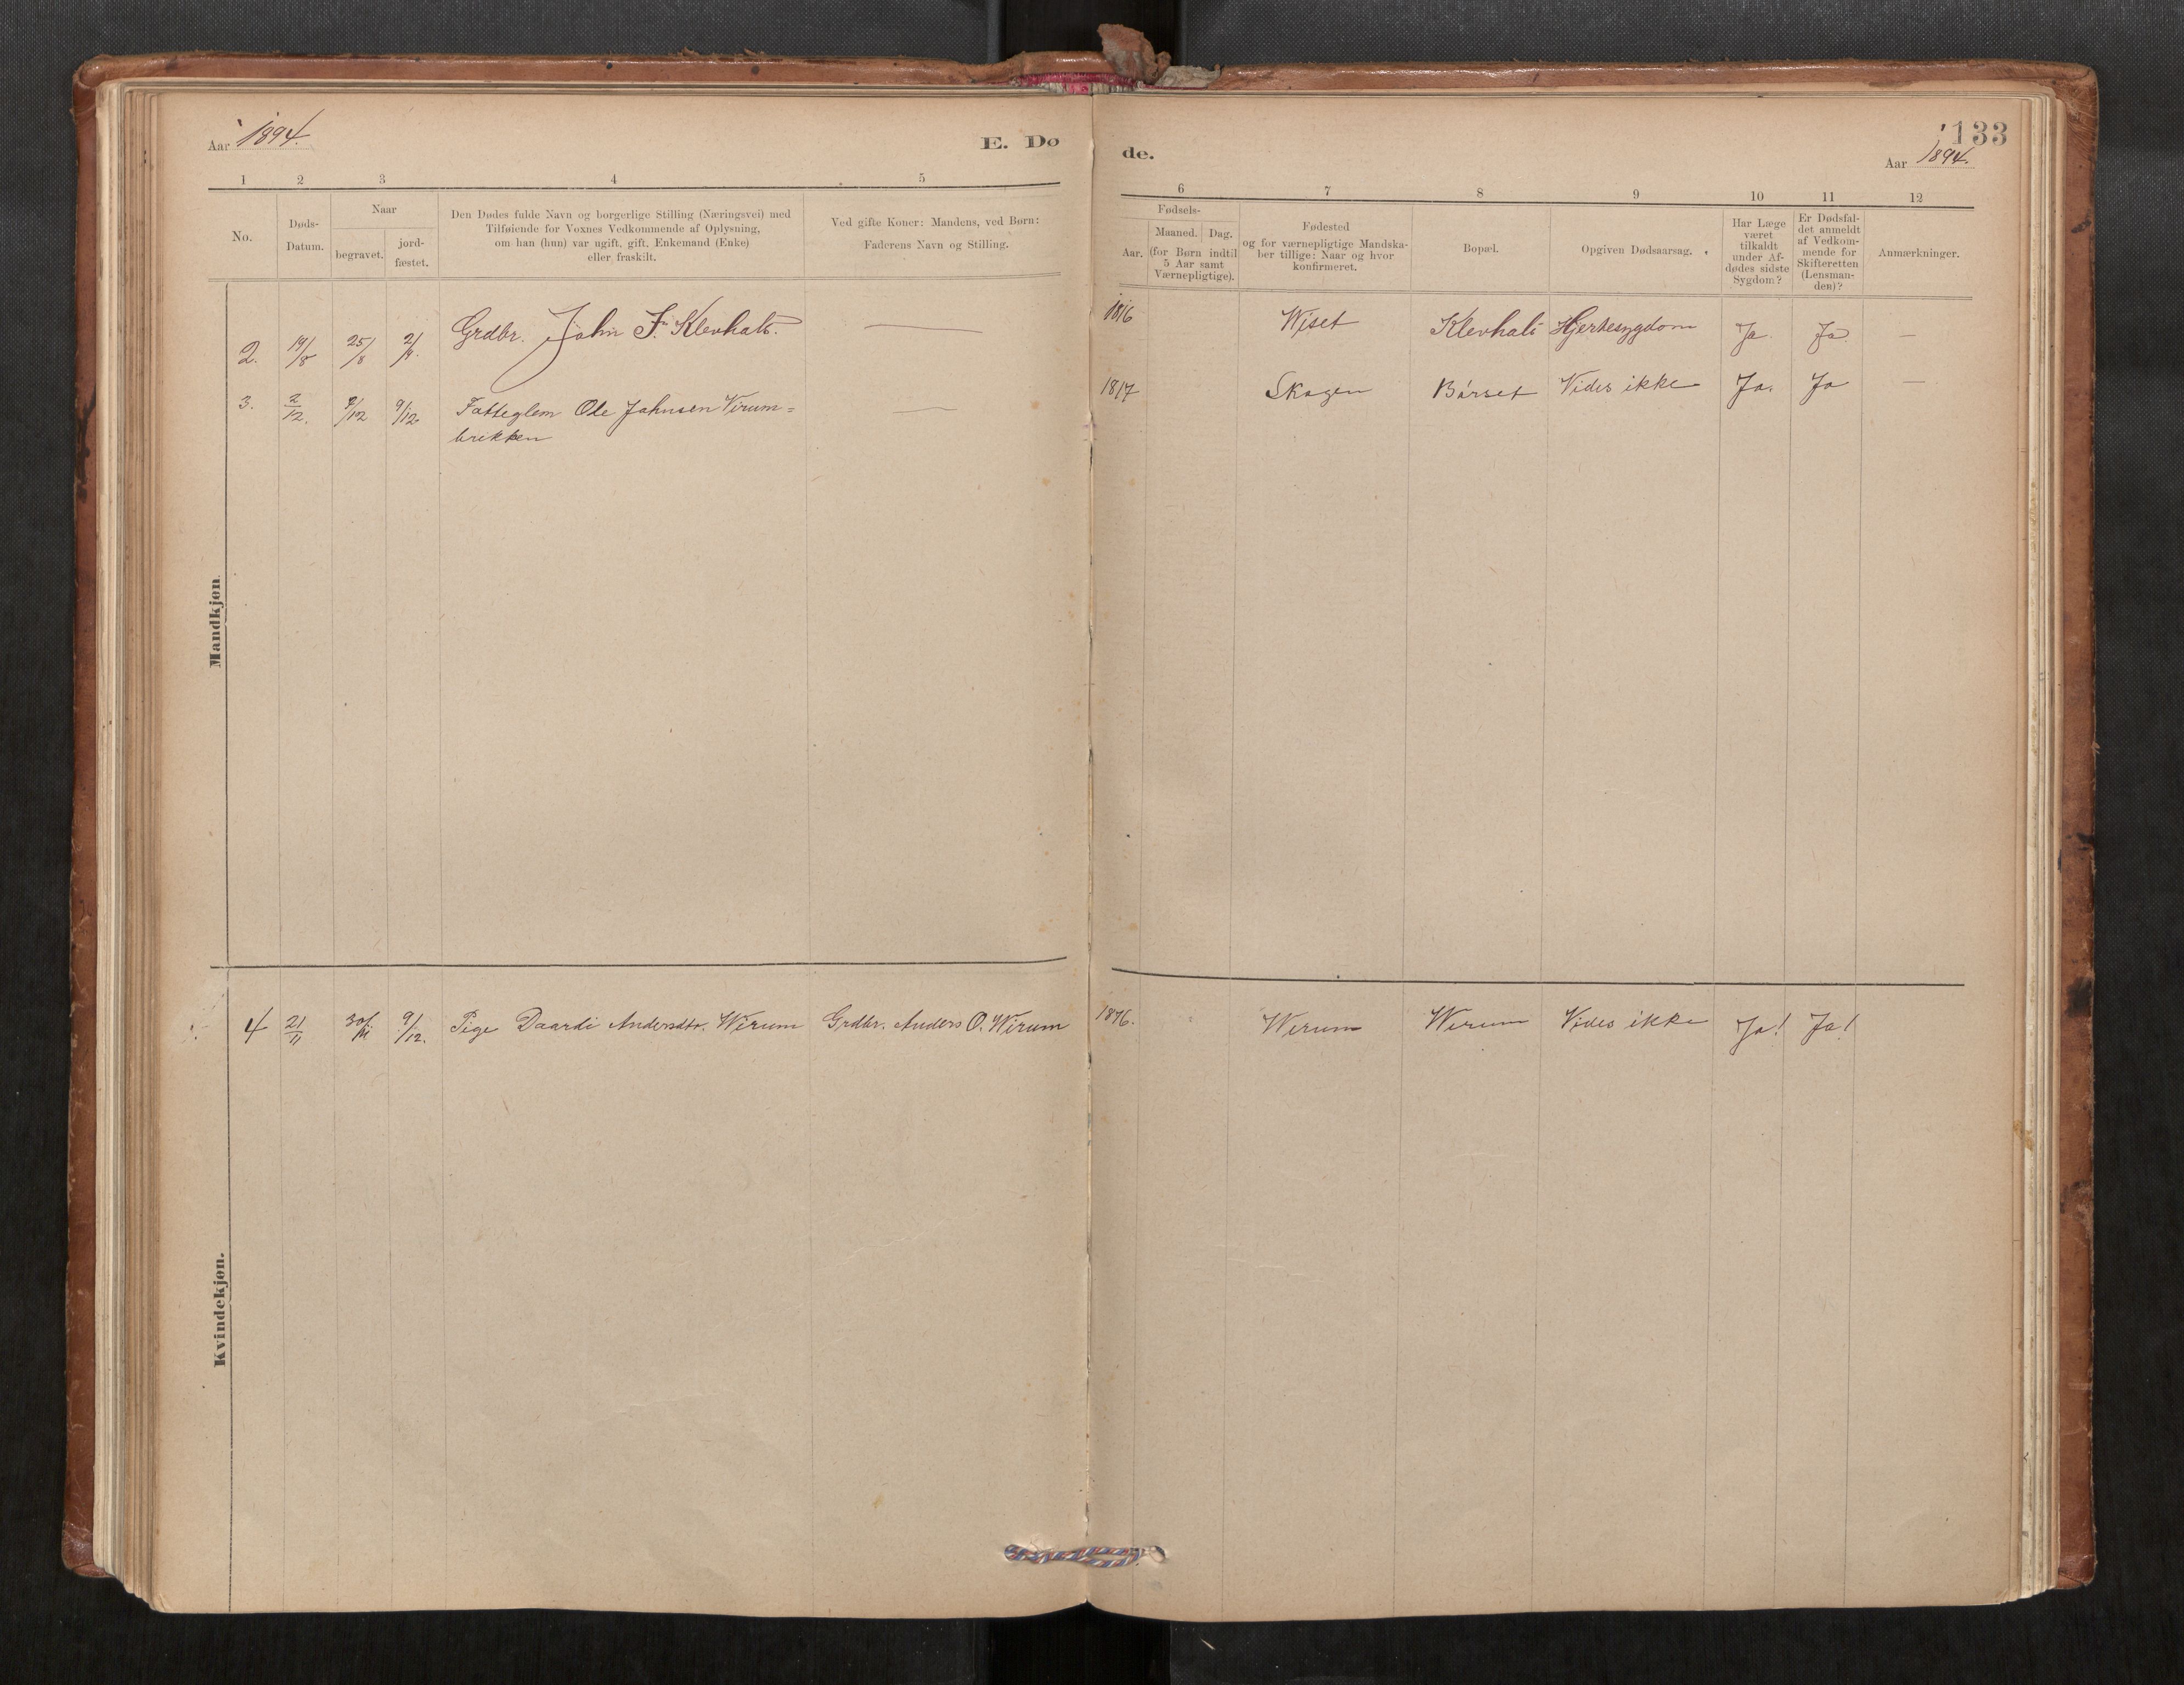 Aar 1894.
E. Dø
de.
133
Aar 1894.
1 2 3 4 5
6 7 8 9 10 11 12
No.
Døds-
Datum.
Naar
begravet.
jord-
fæstet.
Den Dødes fulde Navn og borgerlige Stilling (Næringsvei) med
Tilføiende for Voxnes Vedkommende af Oplysning,
om han (hun) var ugift, gift, Enkemand (Enke)
eller fraskilt.
Ved gifte Koner: Mandens, ved Børn:
Faderens Navn og Stilling.
Fødsels-
Aar.
Maaned. Dag.
(for Børn indtil
5 Aar samt
Værnepligtige).
Fødested
og for værnepligtige Mandska-
ber tillige: Naar og hvor
konfirmeret.
Bopæl.
Opgiven Dødsaarsag.
Har Læge
været
tilkaldt
under Af-
dødes sidste
Sygdom?
Er Dødsfal-
det anmeldt
af Vedkom-
mende for
Skifteretten
(Lensman-
den)?
Anmærkninger.
Mandkjøn
2. 19/8 25/8 2/9. Grdbr. John F. Klevhals. — 1816 Wiset Klevhals Hjertesygdom Ja. Ja. —
3. 2/12. 9/12 Fatteglem Ole Johnsen Virum= — 1817 Skogen Børset Vides ikke Ja. Ja —
brekken
Kvindekjøn.
4 21/11 30/11 9/12. Pige Daardi Andersdtr. Wirum Grdbr. Anders O. Wirum 1876. Werum Werum Vides ikke Ja! Ja!